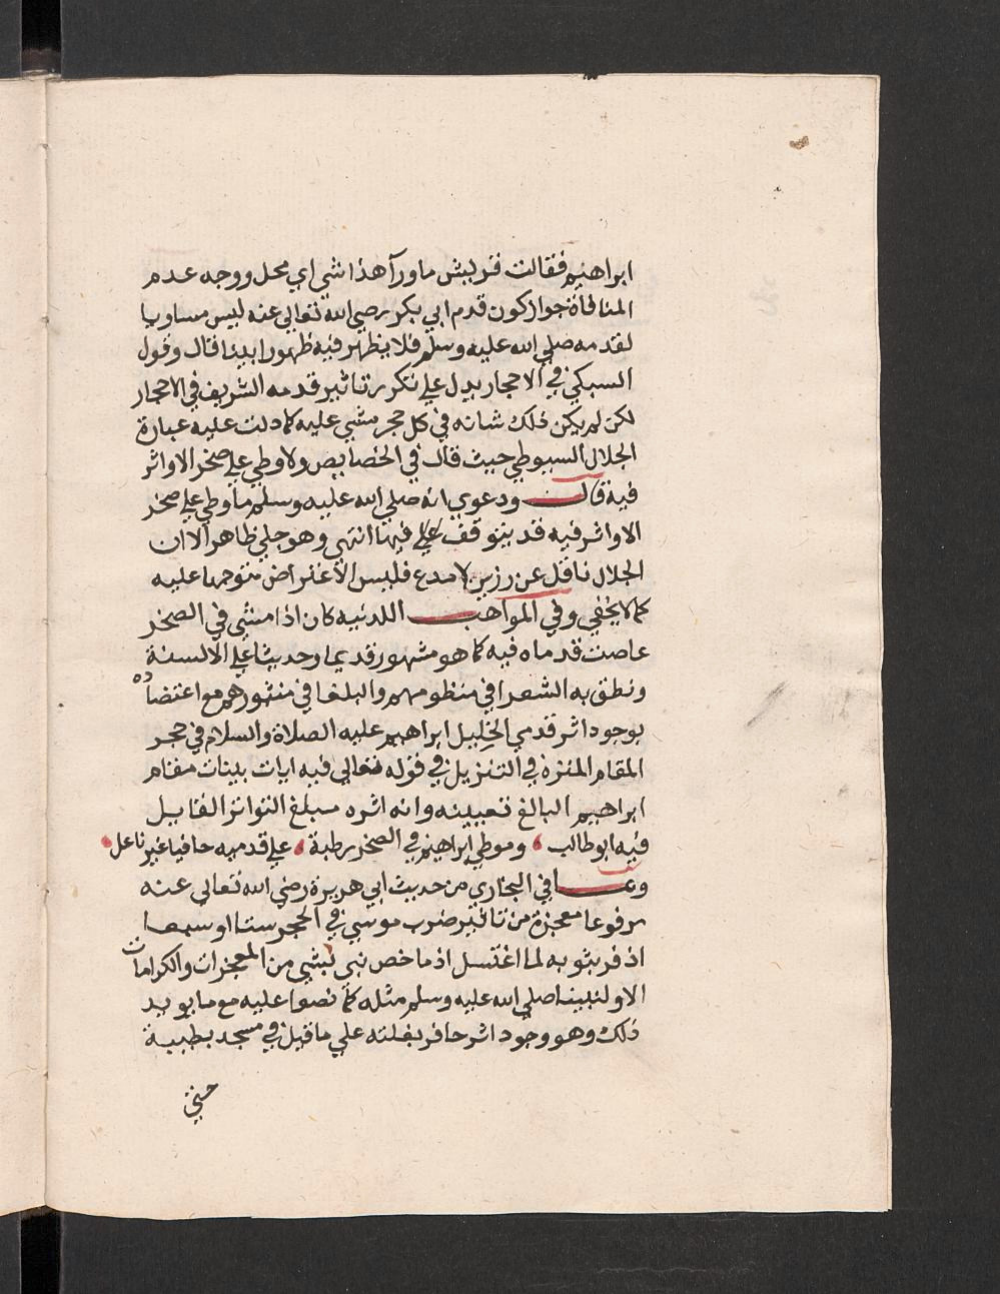 ابراهيم فقالت قريش ما ورآ هذا شي اي محل ووجه عدم
المنافاة جواز كون قدم ابي بكر رضي الله تعالي عنه ليس مساويا
لقدمه صلي الله عليه وسلم فلا يظهر فيه ظهورا بينا قال وقول
السبكي في الاحجار يدل علي تكرر تاثير قدمه الشريف في الاحجار
لكن لم يكن ذلك شانه في كل حجر مشي عليه كما دلت عليه عبارة
الجلال السيوطي حيث قال في الخصايص ولا وطي علي صخر الا واثر
فيه قالــ ودعوي انه صلي الله عليه وسلم ما وطي علي صخر
الا واثر فيه قد يتوقف فيها انتهي وهو جلي ظاهر الا ان
الجلال ناقل عن رزين لا مدع فليس الاعتراض متوجها عليه
كما لا يخفي وفي المواهب اللدنيه كان اذا مشي في الصخر
غاصت قدماه فيه كما هو مشهور قديما وحديثا علي الالسنة
ونطق به الشعرا في منظومهم والبلغا في منثورهم مع اعتضاده
بوجود اثر قدمي الخليل ابراهيم عليه الصلاة والسلام في حجر
المقام المنزه في التنزيل في قوله تعالي فيه ايات بينات مقام
ابراهيم البالغ تعيينه وانه اثره مبلغ التواتر القايل
فيه ابو طالب ، وموطي ابراهيم في الصخر رطبة ، علي قدميه حافيا غير ناعل ،
وبما في البخاري من حديث ابي هريرة رضي الله تعالي عنه
مرفوعا معجزة من تاثير ضرب موسي في الحجر ستا او سبعا
اذ فر بثوبه لما اغتسل اذ ما خص نبي بشي من المعجزات والكرامات
الا ولنبينا صلي الله عليه وسلم مثله كما نصوا عليه مع ما يويد
ذلك وهو وجود اثر حافر بغلته علي ما قيل في مسجد بطيبة
حتي